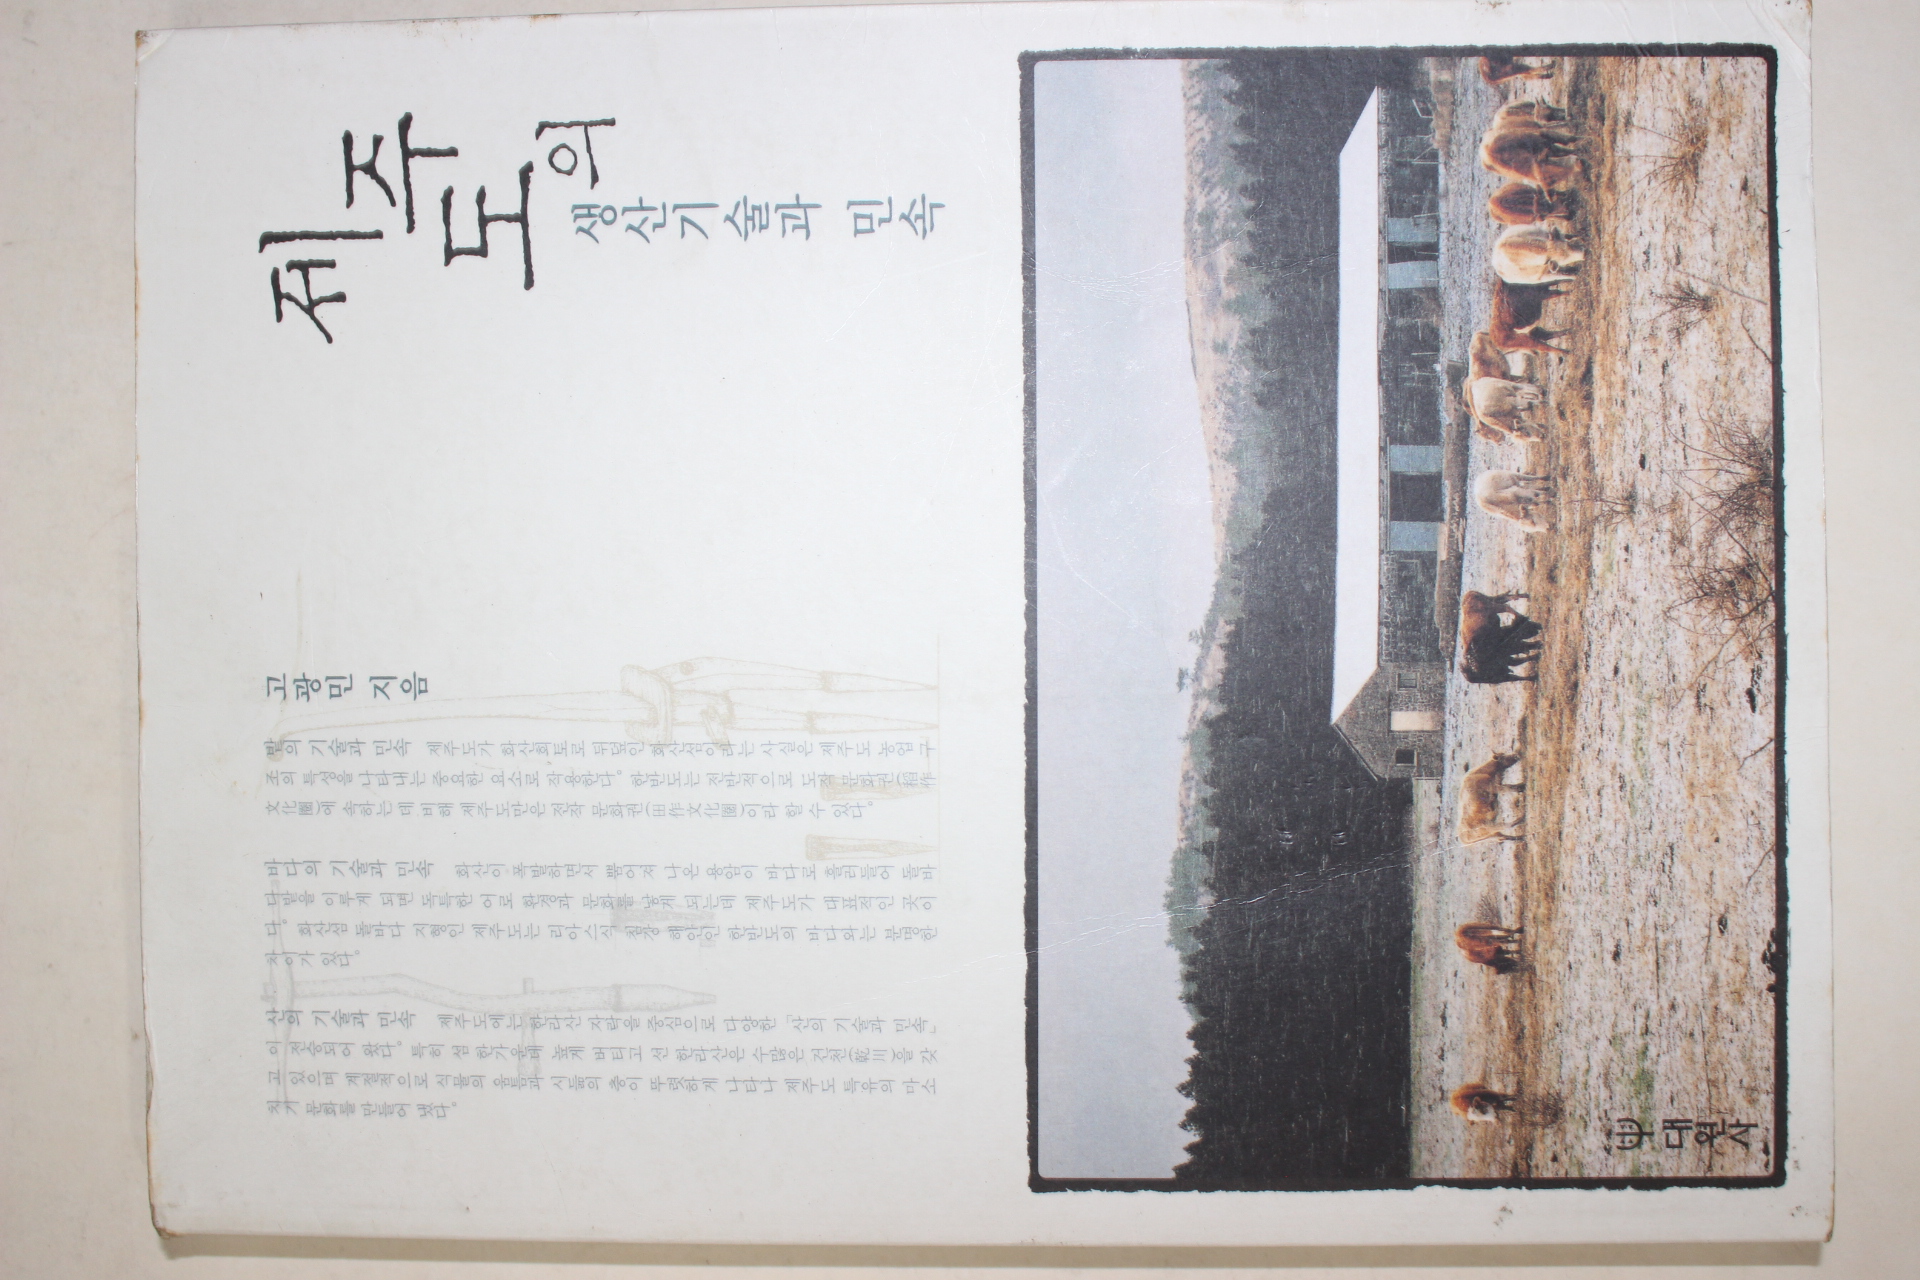 제주도의
생산기술과 민속
고광민 지음
밭의 기술과 민속 제주도가 화산회토로 뒤덮인 화산섬이라는 사실은 제주도 농업 구
조의 특성을 나타내는 중요한 요소로 작용한다. 한반도는 전반적으로 도작 문화권(稻作
文化圈)에 속하는 데 비해 제주도만은 전작 문화권(田作文化圈)이라 할 수 있다.
바다의 기술과 민속 화산이 폭발하면서 뿜어져 나온 용암이 바다로 흘러들어 돌바
다밭을 이루게 되면 독특한 어로 환경과 문화를 낳게 되는데 제주도가 대표적인 곳이
다. 화산섬 돌바다 지형인 제주도는 리아스식 침강 해안인 한반도의 바다와는 분명한
차이가 있다.
산의 기술과 민속 제주도에는 한라산 자락을 중심으로 다양한 「산의 기술과 민속」
이 전승되어 왔다. 특히 섬 한가운데 높게 버티고 선 한라산은 수많은 건천(乾川)을 갖
고 있으며 계절적으로 식물의 움틈과 시듦의 층이 뚜렷하게 나타나 제주도 특유의 마소
치기 문화를 만들어 냈다.
대원사